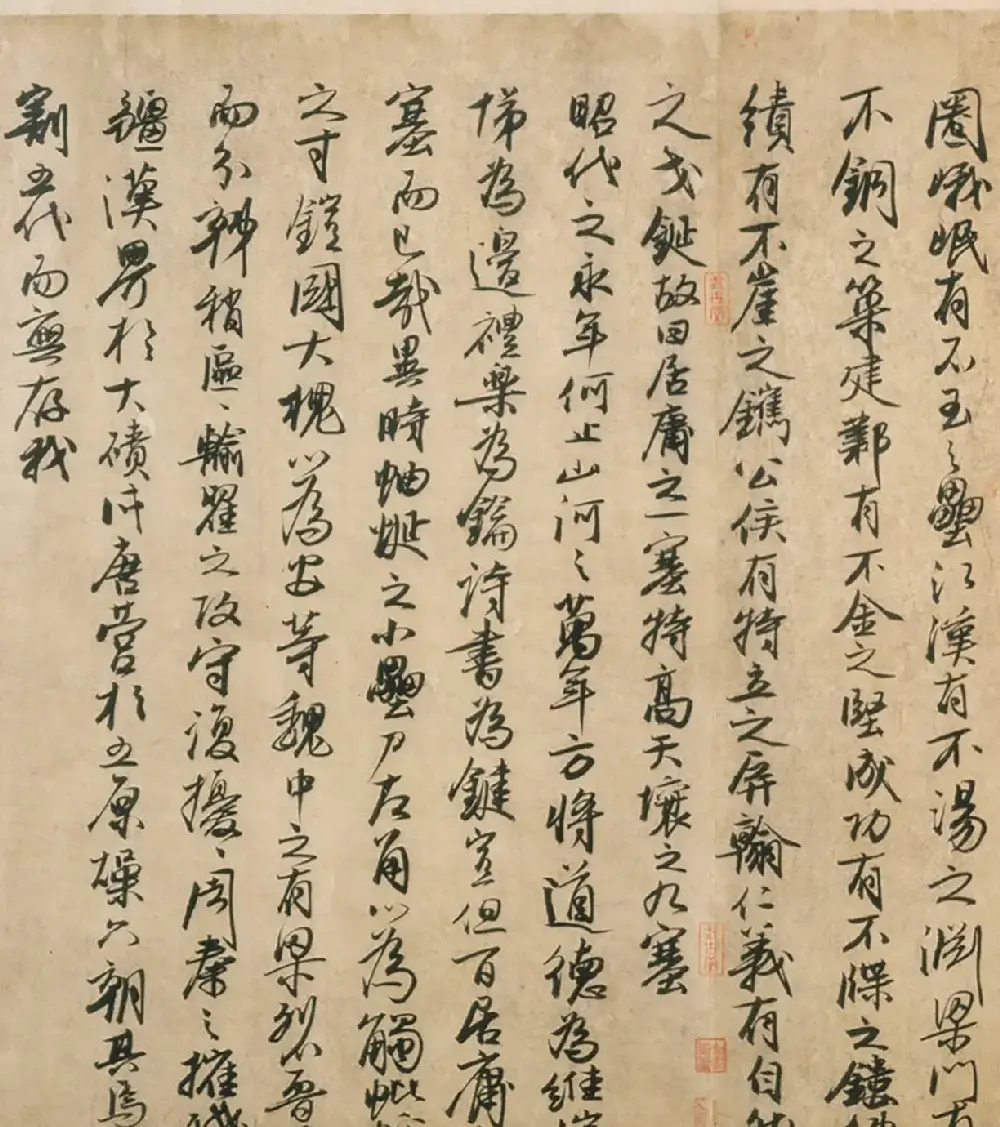 圈峨岷有不玉之壘江漢有不湯之淵梁門有
不銅之築建鄴有不金之堅成功有不牒之鐘
績有不崖之鐫公侯有特立之屏翰仁義有自然
之戈鋋故田居庸之一塞特高天壤之九塞
昭代之永年何止山河之萬年方將道德為維
悌為邊禮樂為鑰詩書為鍵豈但百居庸
塞而已哉異時蚰蜒之小壘刀左角以為觸
之寸鎧國大槐以為安等魏中之有梁列晉
而分韓稍區、輸翟之攻守復擾、周秦之摧
疆漢界於大磧汗唐營於五原燥六朝其焉
割五代而無存我